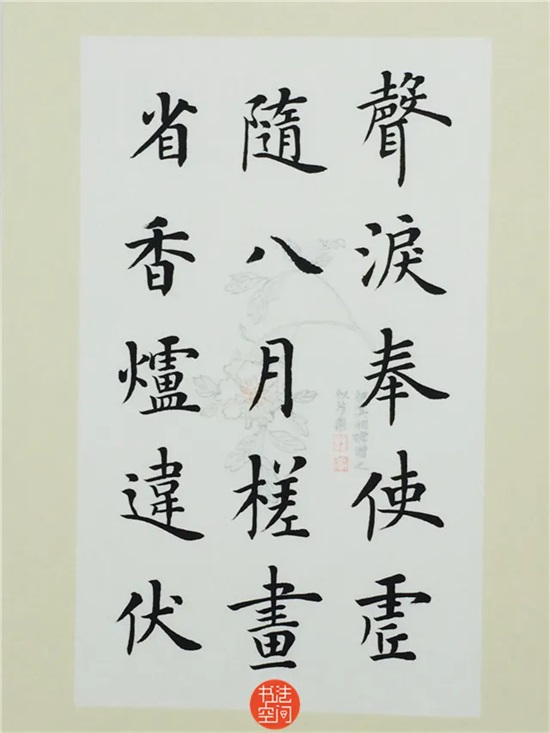 聲淚奉使虛
隨八月槎畫
省香爐違伏
书法
空间